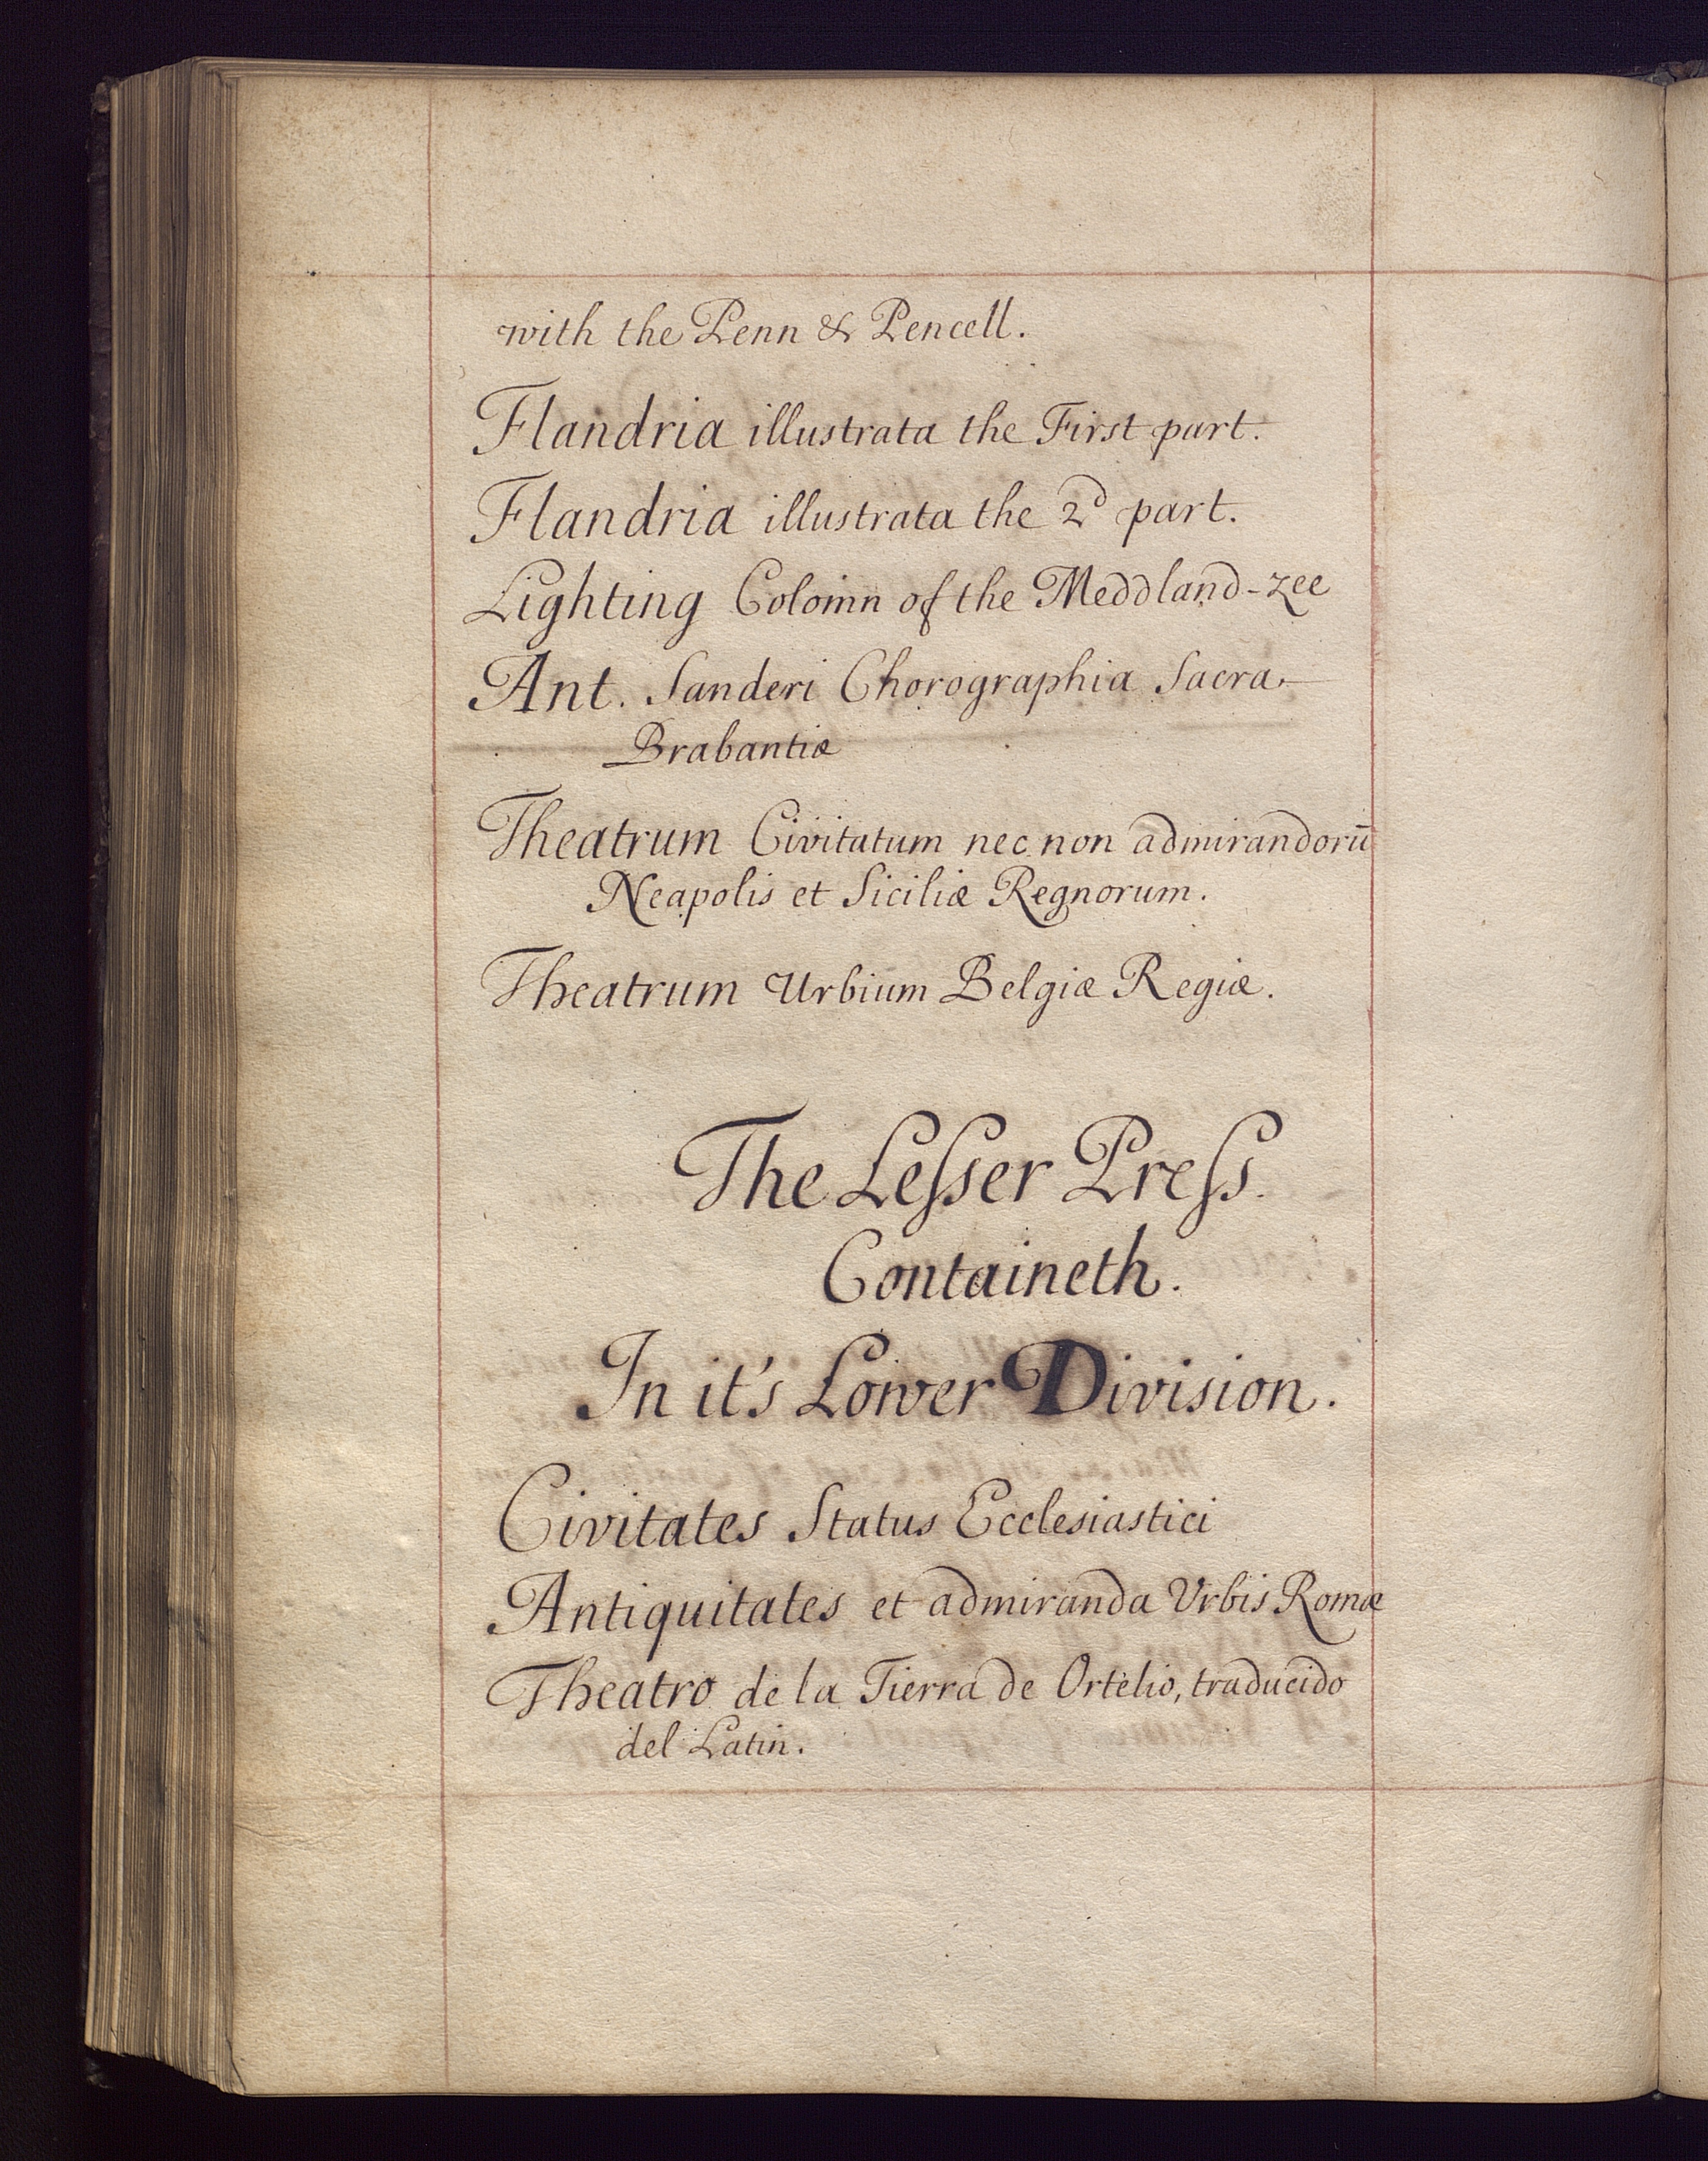 with the Penn & Pencell.
Flandria illustrata the First part.
Flandria illustrata the 2d part.
Lighting Colomn of the Meddland-zee
Ant. Sanderi Chorographia Sacra
Brabantiæ
Theatrum Civitatum nec non admirandorū
Neapolis et Siciliæ Regnorum.
Theatrum Urbium Belgiæ Regiæ.
The Leſser Preſs.
Containeth.
In it's Lower Division.
Civitates Status Ecclesiastici
Antiquitates et admiranda Urbis Romæ
Theatro de la Tierra de Ortelio, traducido
del Latin.